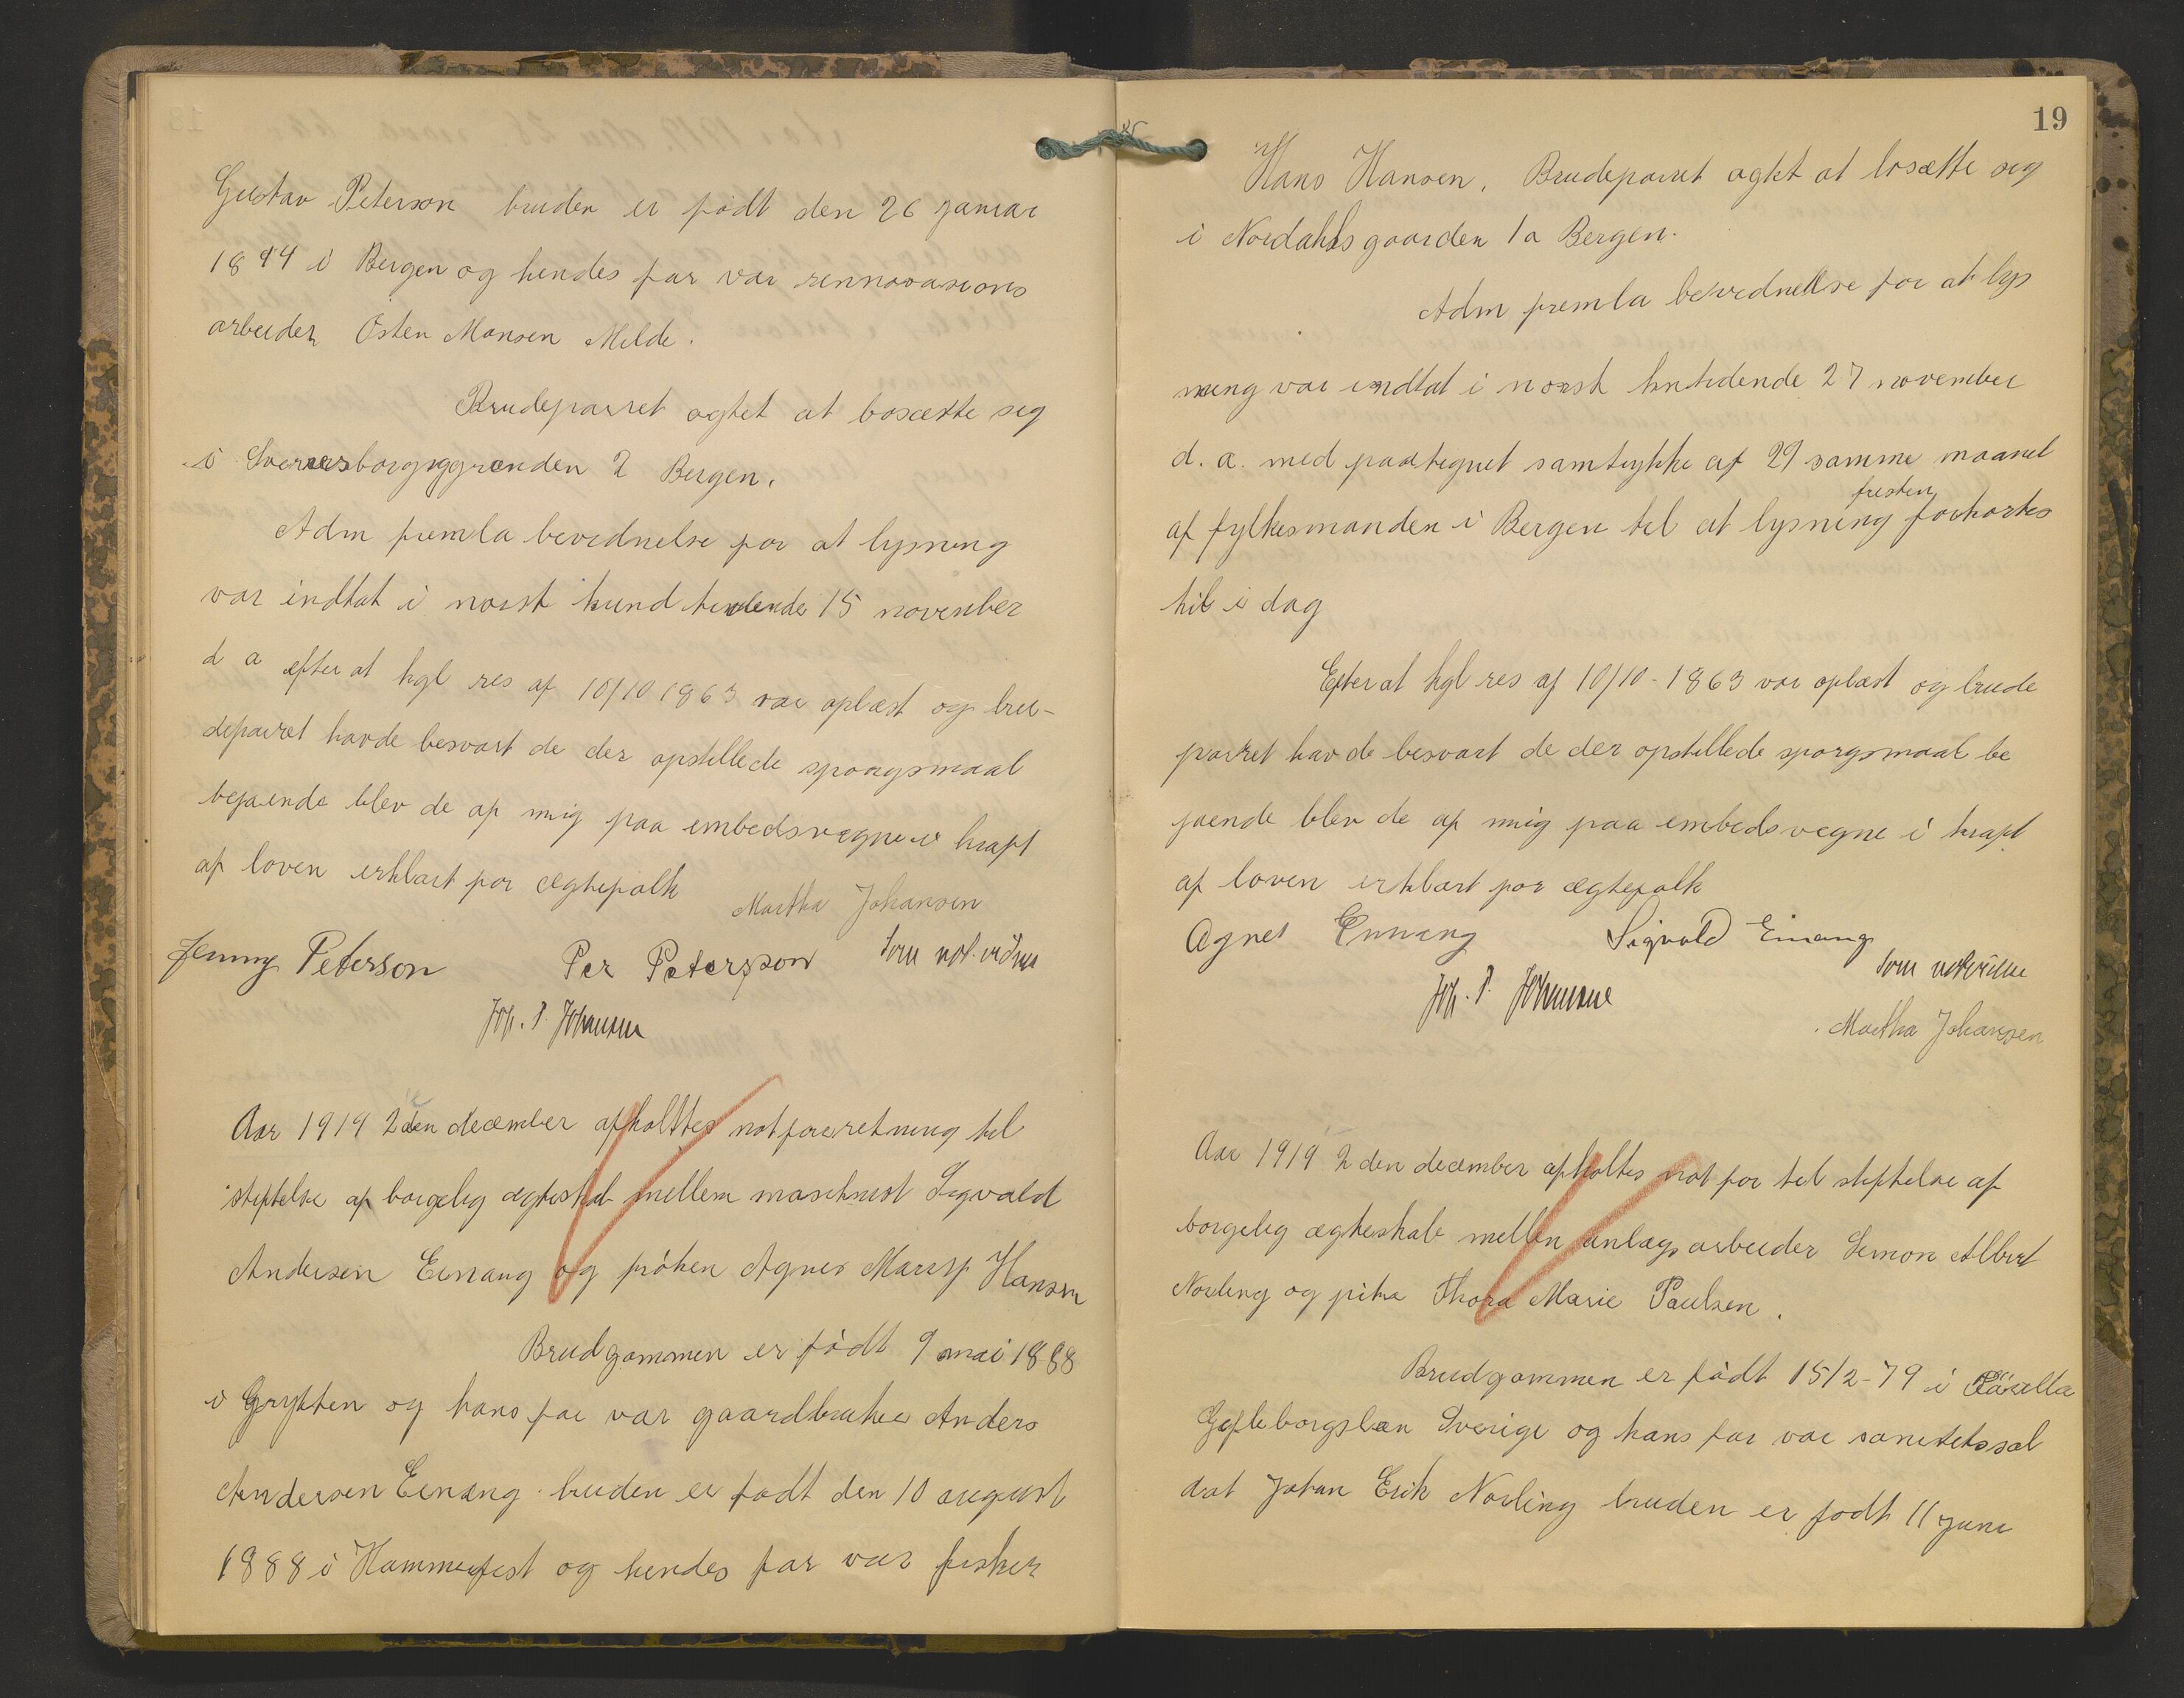 Gustav Peterson bruden er födt den 26 januar
1894 i Bergen og hendes far var rennovasions
arbeider Østen Monsen Milde.
Brudeparret agtet at bosætte sig
i Sverresborgsgrænden 2 Bergen.
Adm fremla bevidnelse for at lysning
var indtat i norsk kund tidende 15 november
d a efter at kgl res af 10/10 1863 var oplæst og bru-
deparret havde besvart de der opstillede spörgsmaal
bejaende blev de af mig paa embedsvegne i kraft
af loven erklært for ægtefolk
Martha Johansen
Jenny Peterson Per Petersson som not.vidne
Joh. P. Johansen
Aar 1919 2den december afholttes notforretning til
stiftelse af borgelig ægteskab mellem maschinist Sigvald
Andersen Einang og fröken Agnes Hansen
Brudgommen er födt 9 mai 1888
i Grytten og hans far var gaardbruker Anders
Andersen Einang bruden er födt den 10 august
1888 i Hammerfest og hendes far var fisker
19
Hans Hansen. Brudeparret agtet at bosætte sig
i Nordahlsgaarden 1a Bergen.
Adm fremla bevidnelse for at lys
ning var indtat i norsk kntidende 27 november
d. a. med paategnet samtykke af 29 samme maanet
fristen
af fylkesmanden i Bergen til at lysning forkortes
til i dag
Efter at kgl res af 10/10-1863 var oplæst og brude
parret havde besvart de der opstillede sporgsmaal be
jaende blev de af mig paa embedsvegne i kraft
af loven erklært for ægtefolk
Agnes Einang Sigvald Einang
som notvidne
Joh. P. Johansen
Martha Johansen
Aar 1919 2 den december afholtes not for til stiftelse af
borgelig ægteskab mellem anlægsarbeider Simon Albert
Norling og pike Thora Marie Paulsen.
Brudgommen er födt 15/2-79 i
Gefleborgslæn Sverige og hans far var sanitetssol
dat Johan Erik Norling bruden er födt 11 juni